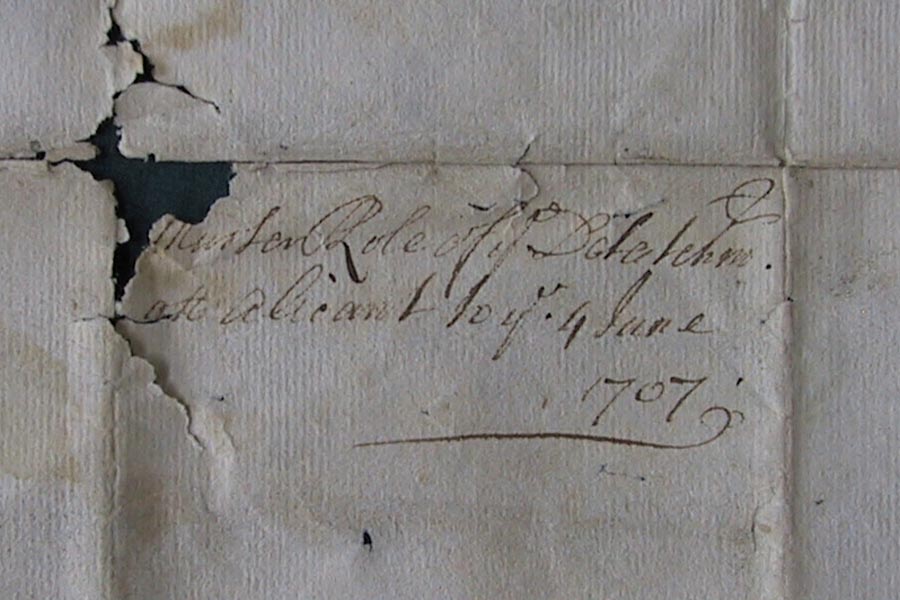 Muster Role of yᵉ Detatchmᵗ.
att Alicant to yᵉ. 4 June
1707